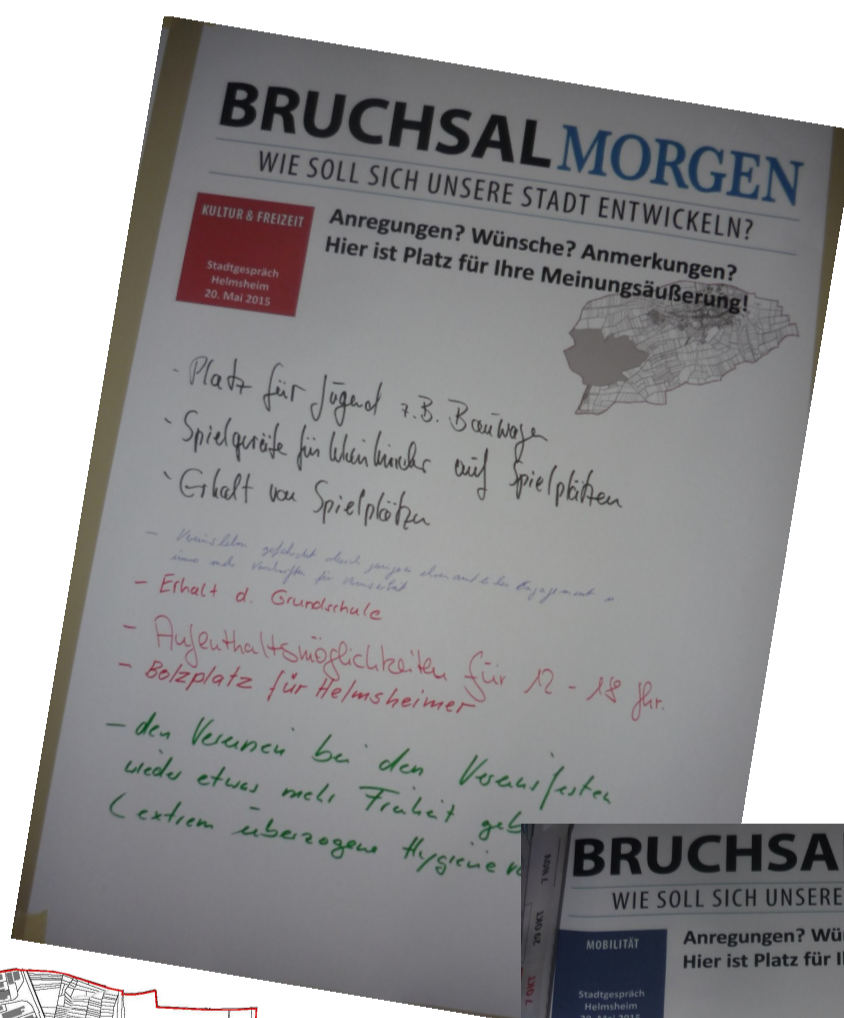 BRUCHSAL MORGEN
WIE SOLL SICH UNSERE STADT ENTWICKELN?
KULTUR & FREIZEIT
Stadtgespräch
Helmsheim
20. Mai 2015
Anregungen? Wünsche? Anmerkungen?
Hier ist Platz für Ihre Meinungsäußerung!
- Platz für Jugend z.B. Bauwagen
- Spielgeräte für Kleinkinder auf Spielplätzen
- Erhalt von Spielplätzen
- Vereinsleben durch Engagement
- Erhalt d. Grundschule
- Aufenthaltsmöglichkeiten für 12 - 18 Jhr.
- Bolzplatz für Helmsheimer
- den Vereinen bei den Vereinsfesten
wieder etwas mehr Freiheit geb
(extrem überzogene Hygiene
7 OKT 29 OKT 7 NOV
BRUCHSA
WIE SOLL SICH UNSERE
MOBILITÄT
Stadtgespräch
Anregungen? Wü
Hier ist Platz für I